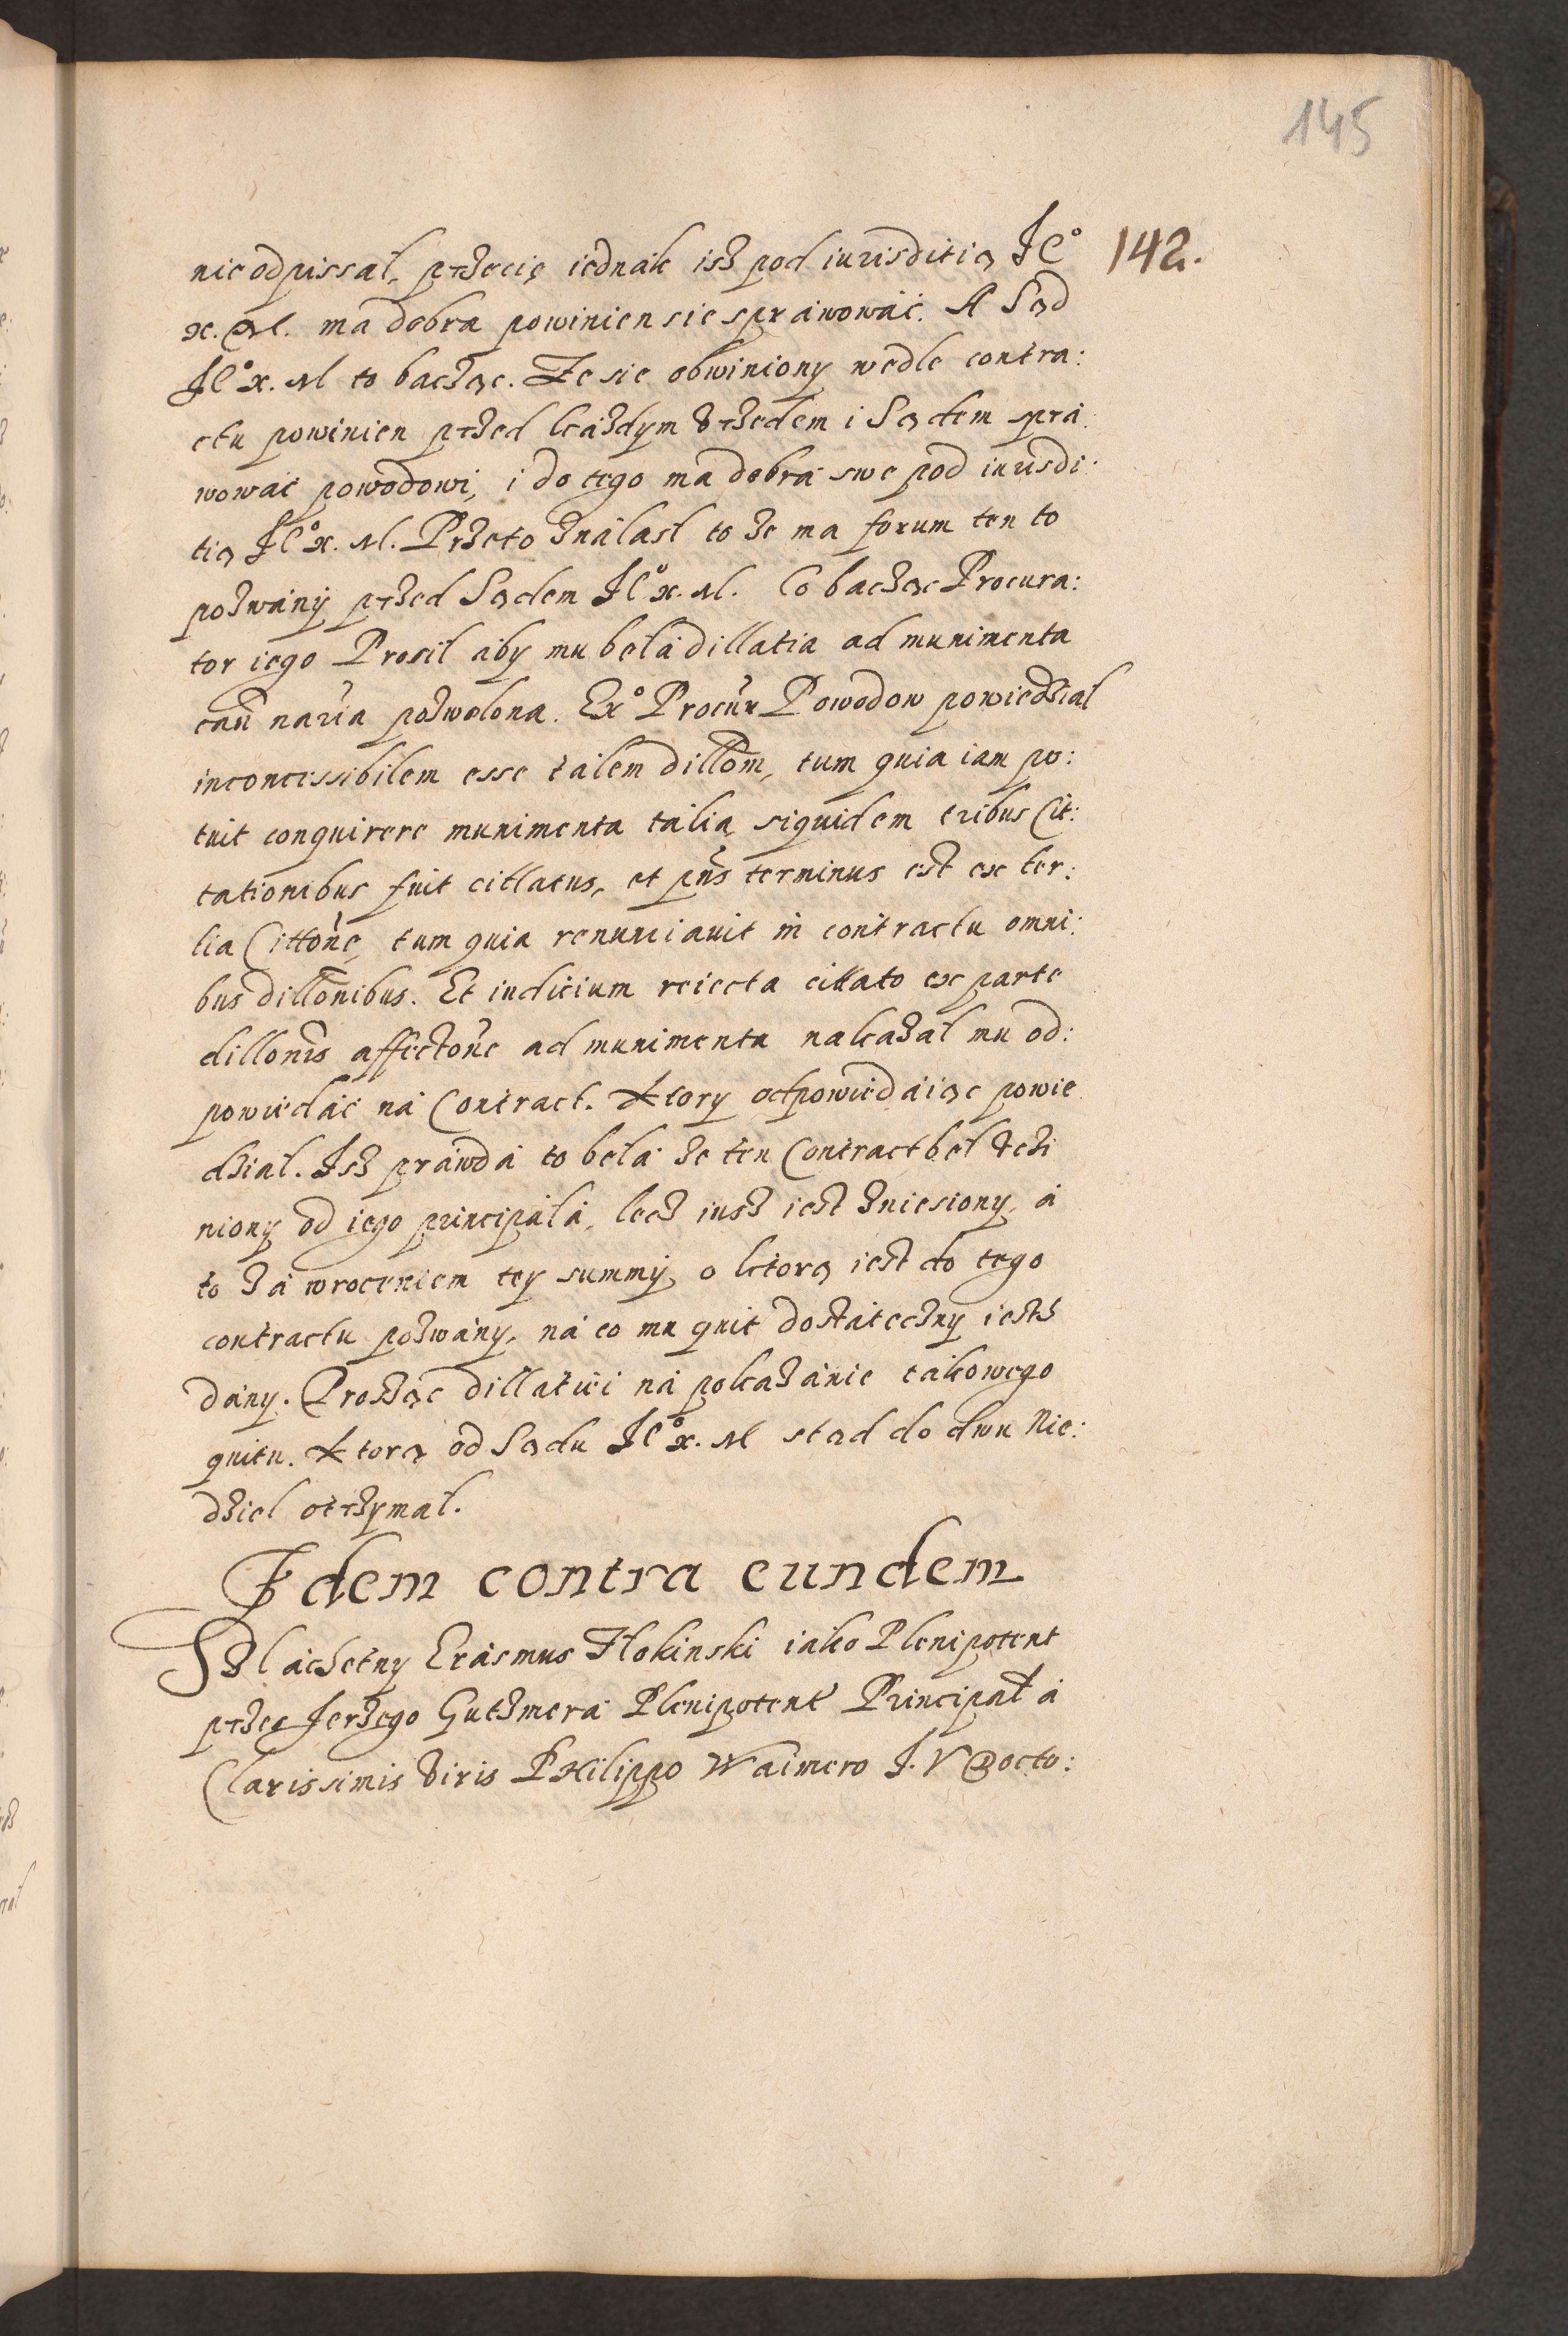 145
142.
nieodpissal, przecię iednak isz pod iurisditią Je°
x. M. ma dobra powinien sie sprawowáć. A Sąd
Je° x. M to bacząc. Ze sie obwiniony wedle contra:
ctu powinien przed kázdym Vrzedem i Sądem sprá
wowác powodowi, i do tego ma dobrá swe pod iurisdi:
tią Je° x. M. Przeto ználasl to ze ma forum ten to
pozwány przed Sądem Je° x. M. Co bacząc Procura:
tor iego Prosil áby mu belá dillatia ad munimenta
cau naria pozwolona. Ex° Procur Powodow powiedzial
inconcessibilem esse tálem dillom, tum quia iam po:
tuit conquirere munimenta tália, siquidem tribus Cit:
tationibus fuit cittatus, et pns terminus est ex ter:
tia Cittone, tum quia renunciauit in contractu omni:
bus dillonibus. Et iudicium reiecta cittato ex parte
dillonis affectone ad munimenta nakazal mu od:
powiedác ná Contract. Ktory odpowiedáiąc powie
dzial. Isz práwdá to belá ze ten Contract bel vczi
niony od iego principálá, lecz iusz iest zniesiony, á
to zá wroceniem tey summy, o ktorą iest do tego
contractu pozwány, ná co mu quit dostáteczny iests
dány. Prosząc dillatiei ná pokazánie tákowego
quitu. Ktorą od Sądu Je° x. M stąd do dwu Nie:
dziel otrzymal.
Idem contra eundem
Szláchetny Erásmus Flokinski iako Plenipotent
przez Jerzego Gutzmerá Plenipotent Principal á
Clarissimis Viris Philippo Waimero J. V Docto: